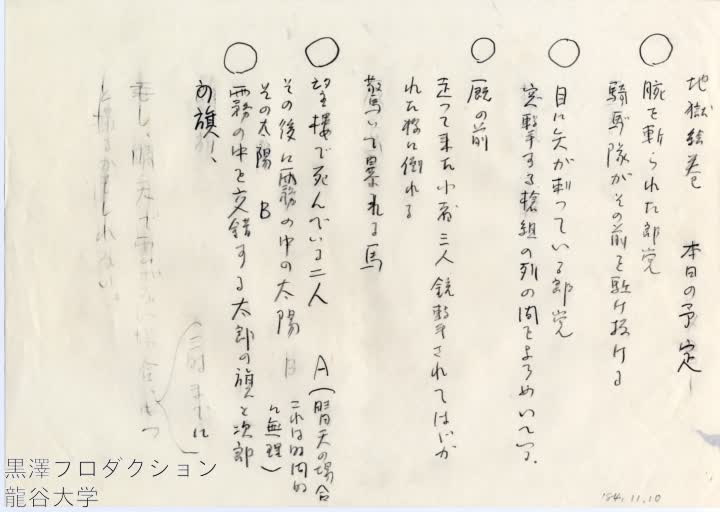 地獄絵巻 本日の予定
○腕を斬られた郎党
騎馬隊がその前を駈け抜ける
○目に矢が刺っている郎党
突撃する槍組の列の間をよろめいている.
○厩の前
走って来た小者三人銃撃されてはじか
れた様に倒れる
驚いて暴れる馬
○望楼で死んでいる二人 A(晴天の場合
その後に雨霧の中の太陽 B これは時間的
その太陽 B に無理)
○雨霧の中を交錯する太郎の旗と次郎
の旗、
もし、晴天で
かもしれない。
'84.11.10
黒澤プロダクション
龍谷大学